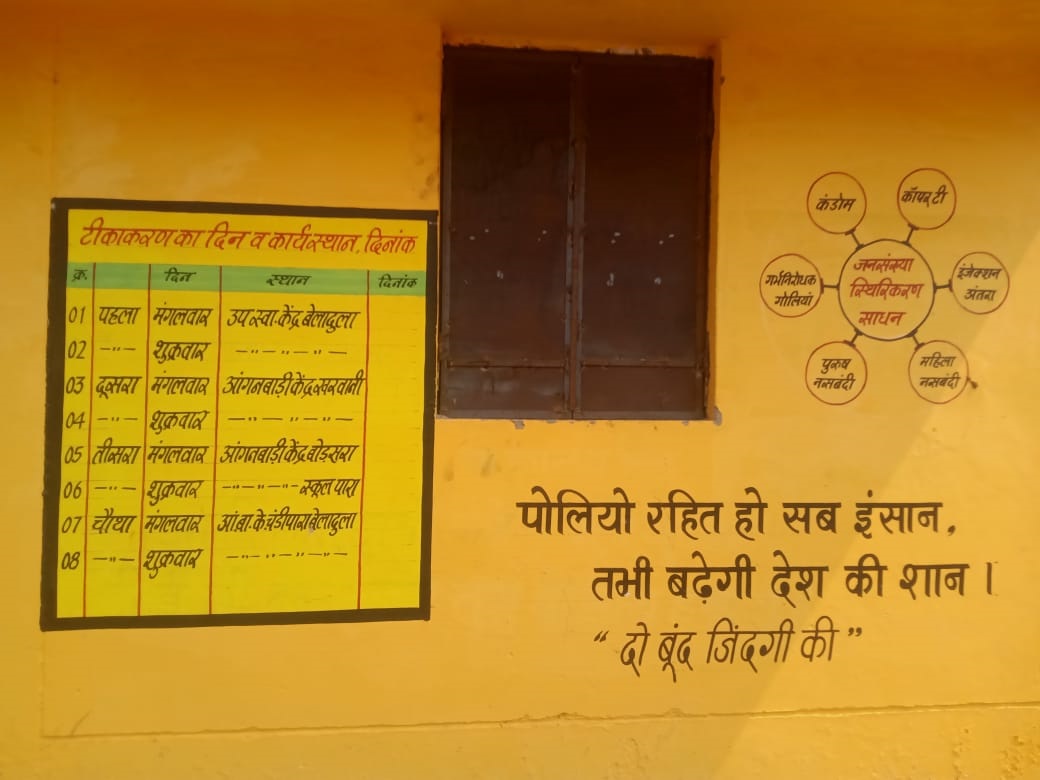 टीकाकरण का दिन व कार्यस्थान, दिनांक
क्र. दिन स्थान दिनांक
01 पहला मंगलवार उप स्वा. केंद्र बेलादुला
02 -"- शुक्रवार -"-"-"-
03 दूसरा मंगलवार आंगनबाड़ी केंद्र खरवानी
04 -"- शुक्रवार -"-"-"-
05 तीसरा मंगलवार आंगनबाड़ी केंद्र बोडसरा
06 -"- शुक्रवार -"-"-"- स्कूल पारा
07 चौथा मंगलवार आं.बा.के.चंडीपारा बेलादुला
08 -"- शुक्रवार -"-"-"-"-
कंडोम
कॉपर टी
गर्भनिरोधक
गोलियां
जनसंख्या
स्थिरिकरण
साधन
इंजेक्शन
अंतरा
पुरुष
नसबंदी
महिला
नसबंदी
पोलियो रहित हो सब इंसान,
तभी बढ़ेगी देश की शान ।
“ दो बूंद जिंदगी की ”